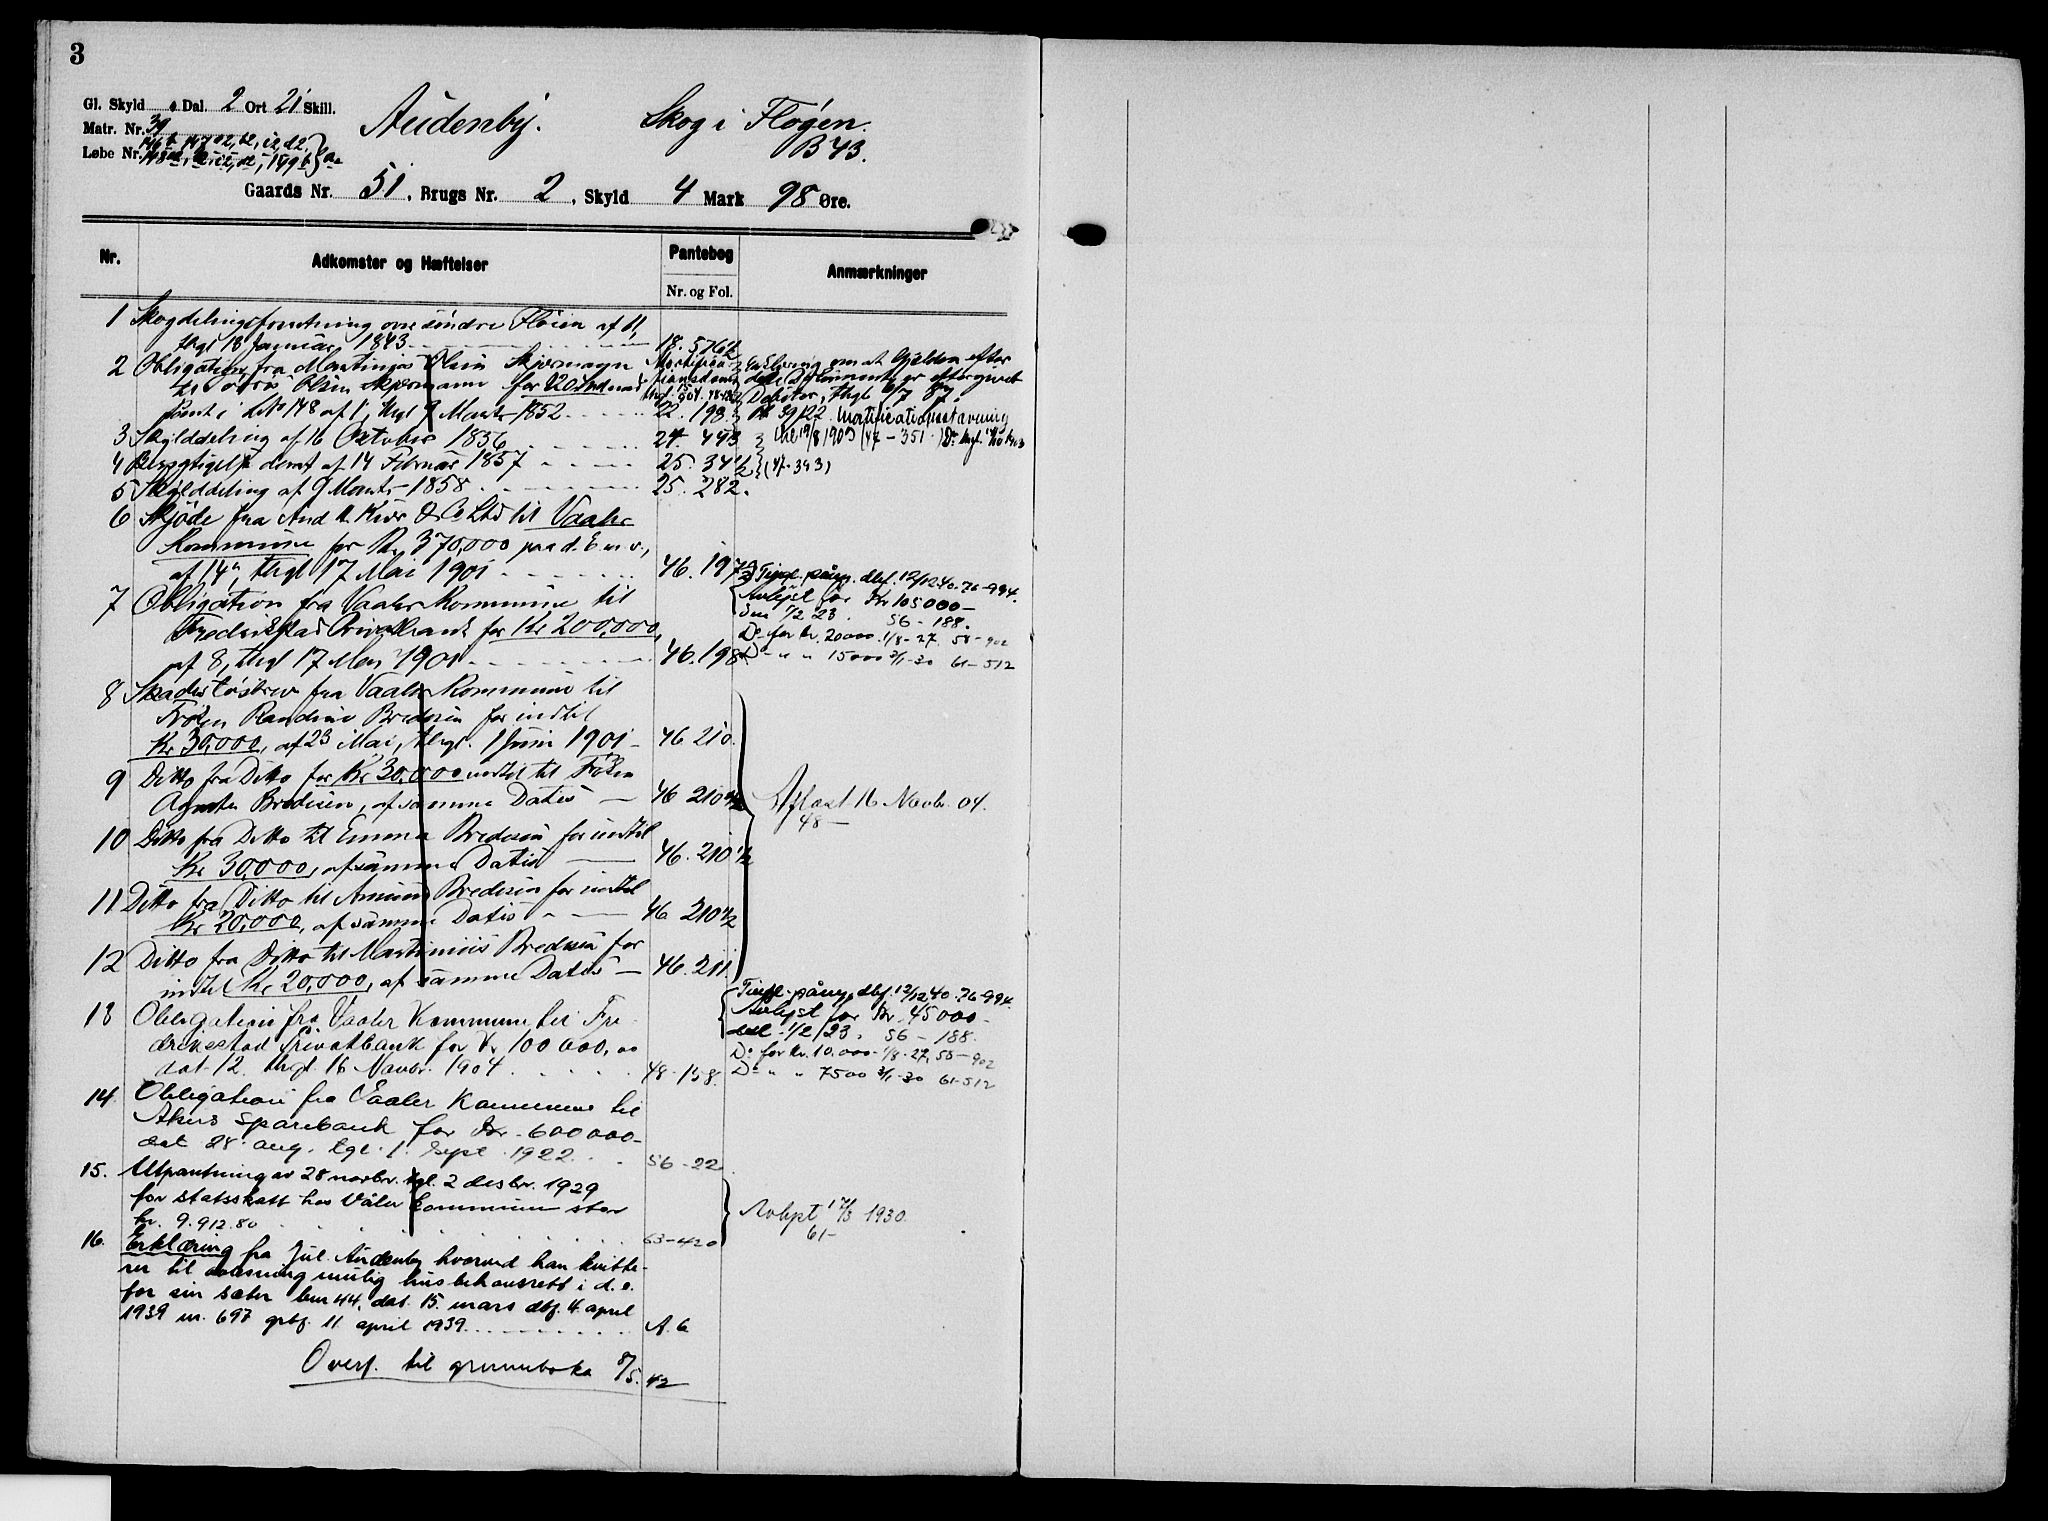 3
Gl. Skyld Dal. 2 Ort 21 Skill.
Matr. Nr. 39
Løbe Nr.
Audenby. Skog i Fløgen.
B 43.
Gaards Nr. 51, Brugs Nr. 2, Skyld 4 Mark 98 Øre.
Nr. Adkomster og Hæftelser Pantebog Anmærkninger
Nr. og Fol.
1 Skogdelingsforretning over søndre Fløien af 11,
thgl 18 Januar 1843 18. 576
2 Obligation fra Martinius Olsen
til Olsen for
i LNo 148 af 1, thgl 9 Marts 1852 22. 198
Erklæring om at Gjelden efter
dette Document er eftergivet
Debitor, thgl 6/7 87
3 Skylddeling af 16 October 1856 24. 443
4 Berigtigelse deraf af 14 Februar 1857 25. 34 1/2
(47-393)
5 Skylddeling af 9 Marts 1858 25. 282.
6 Skjøde fra And H. Kiær & Co Ltd til Vaaler
Kommune for Kr 370,000 paa d. E m v.,
af 14de, thgl 17 Mai 1901 46. 197
7 Obligation fra Vaaler Kommune til
Fredrikstad Privatbank for Kr 200,000
af 8, thgl 17 Mai 1901 46. 198
Tingl. påny. dbf. 12/12 40. 76-994.
Avlyst for Kr 105000-
1/2 23. 56-188.
Do for kr. 20000. 1/8-27. 58-902
Do - " " 15000 3/1-30 61-512
8 Skadesløsbrev fra Vaaler Kommune til
Frøken Randine Bredesen for indtil
Kr 30,000, af 23 Mai, thgl. 1 Juni 1901 - 46 210.
9 Ditto fra Ditto for Kr 30,000 indtil til Frøken
Agnethe Bredesen, af samme Datis - 46 210
10 Ditto fra Ditto til Emma Bredesen for indtil
Kr 30,000, af samme Datis - 46. 210 1/2
11 Ditto fra Ditto til Bredesen for indtil
Kr 20,000, af samme Datis - 46 210 1/2
12 Ditto fra Ditto til Martinius Bredesen for
indtil Kr 20,000, af samme Datis - 46. 211.
Aflæst 16 Novbr. 04.
48-
13 Obligation fra Vaaler Kommune til Fre-
drikstad Privatbank for Kr 100 000, 00
dat 12. thgl 16 Novbr. 1904 48-158.
Tingl. påny, dbf. 12/12 40. 76-994.
Avlyst for Kr. 45000-
1/2/23. 56-188.
Do for kr. 10.000- 1/8-27, 58-902
Do - " " 7500 3/1-30 61-512
14. Obligation fra Vaaler Kommune til
Akers Sparebank for Kr. 600000-
dat 28. aug. tgl. 1. Sept. 1922. 56-22
15. Utpantning av 28 novbr. tgl. 2 desbr. 1929
for statsskatt hos Våler kommune stor
kr. 9.912.80 63-420
Avlyst 17/3 1930.
61-
16. Erklæring fra Jul. Audenby hvorved han kvitte-
rer til mulig husbehovsrett i d. e.
for sin sæter bnr 44, dat. 15. mars dbf. 4. april
1939 nr. 697 grbf. 11 april 1939 A. 6
Overf. til grunnboka 8/5.42